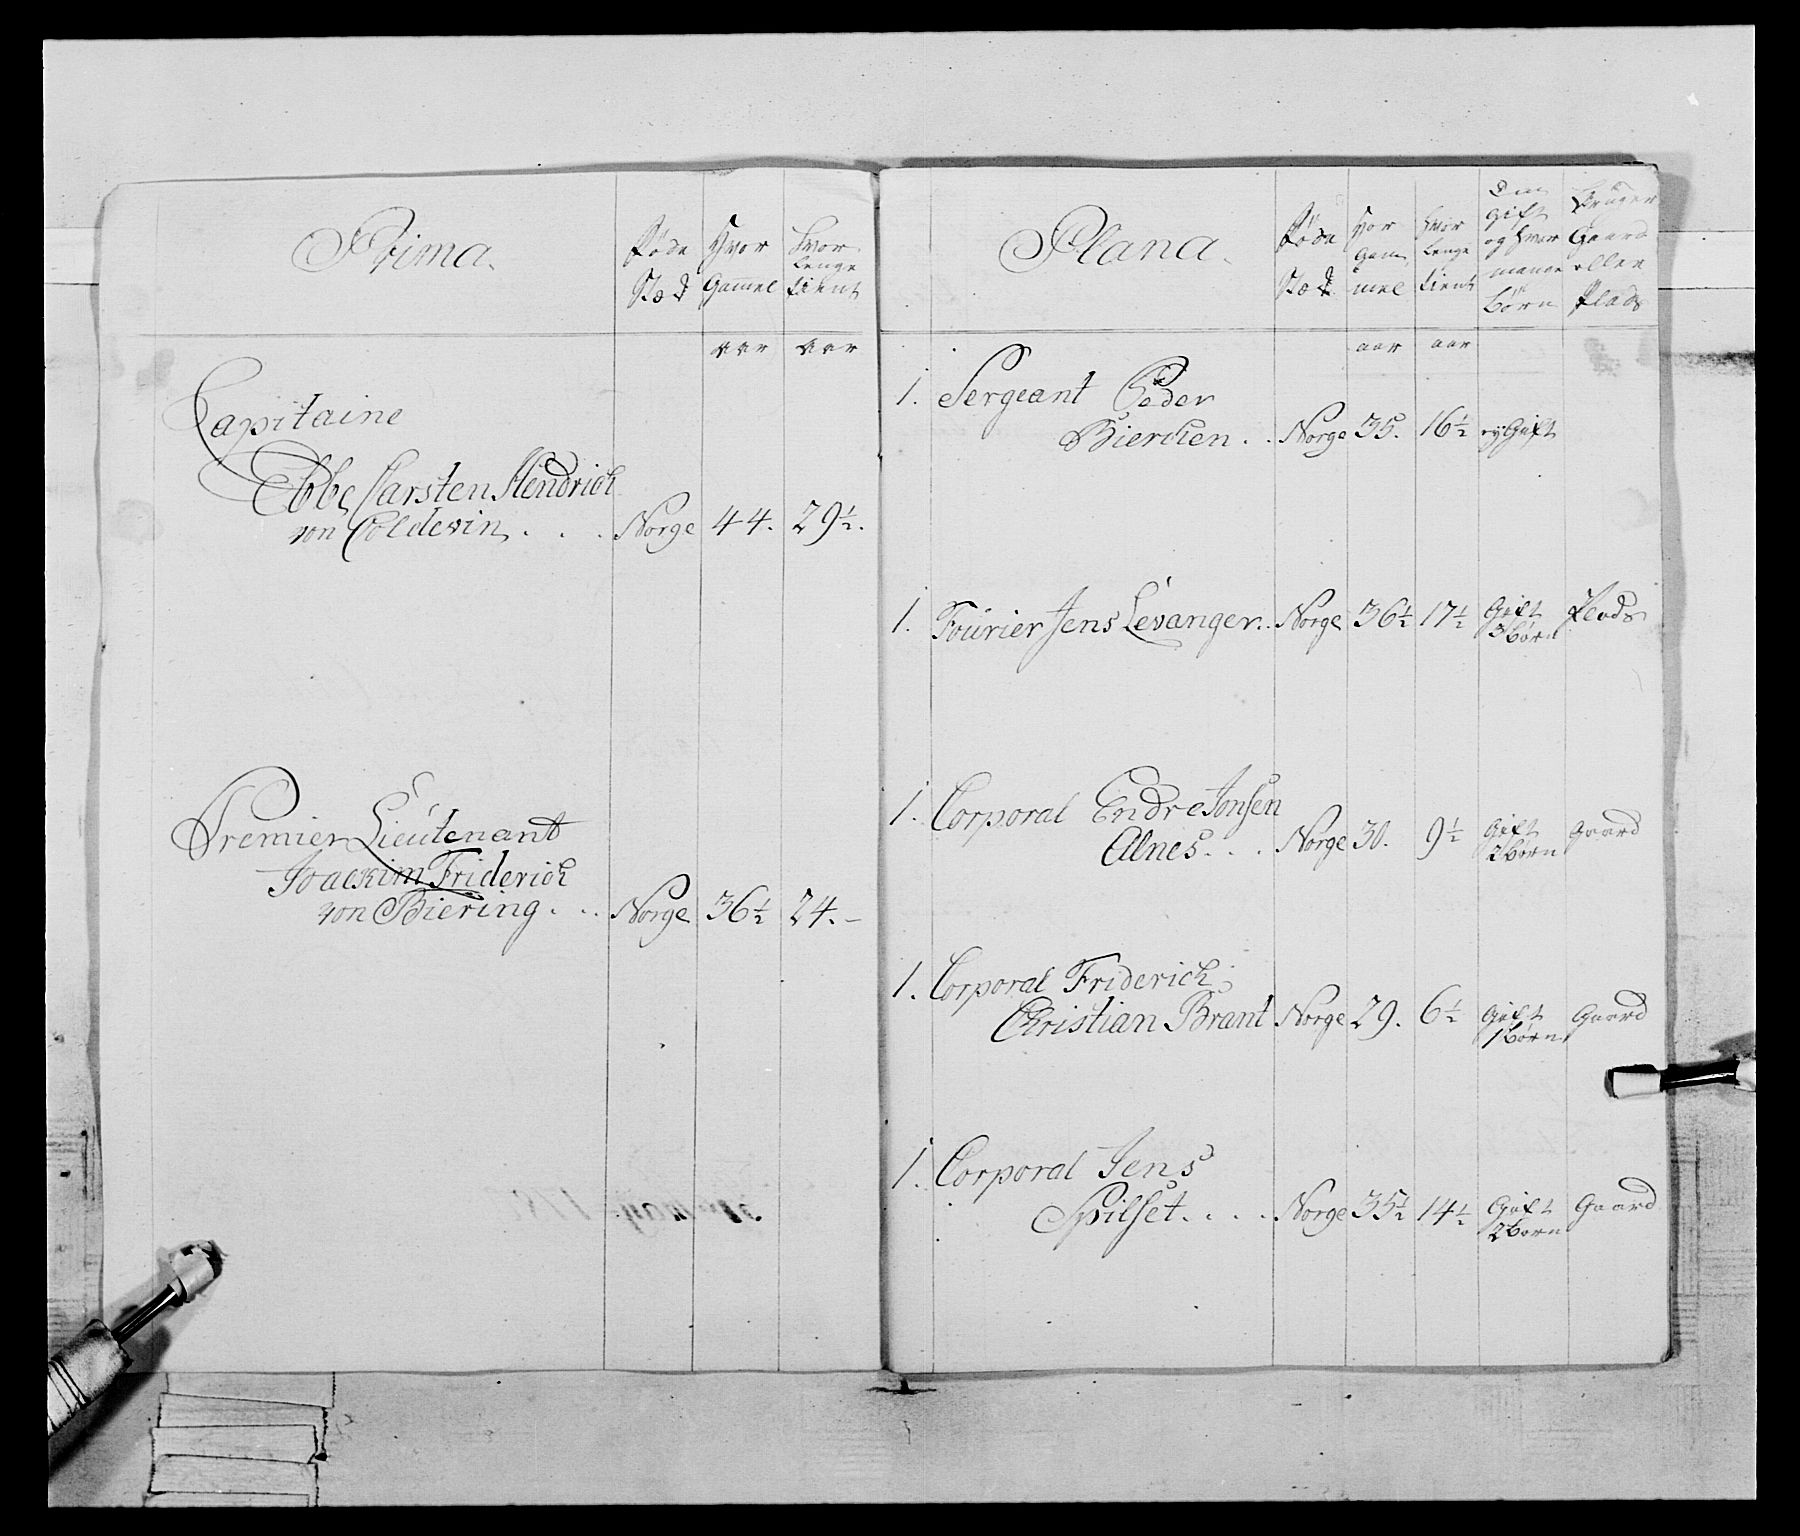 Prima.
Føde Stæd
Hvor Gammel
Hvor Lenge tient
aar aar
Capitaine
Ebbe Carsten Hendrich
von Coldevin . . . Norge 44. 29½.
Premier Lieutenant
Joackim Friderich
von Biering . . . Norge 36½ 24.–
Plana.
Føde Stæd
Hvor Gammel
Hvor Lenge tient
Om gift og hvor mange børn
Bruger Gaard eller Plads
aar aar
1. Sergeant Peder
Biercken . . Norge 35. 16½ ey Gift
1. Fourier Jens Levanger. . Norge 36½ 17½ Gift 3 børn Plads
1. Corporal Endre Jonsen
Alnes . . . Norge 30. 9½ Gift 2 børn Gaard
1. Corporal Friderich
Christian Brant Norge 29. 6½ Gift 1 børn Gaard
1. Corporal Jens
Spilset. . . . Norge 35½ 14½ Gift 2 børn Gaard